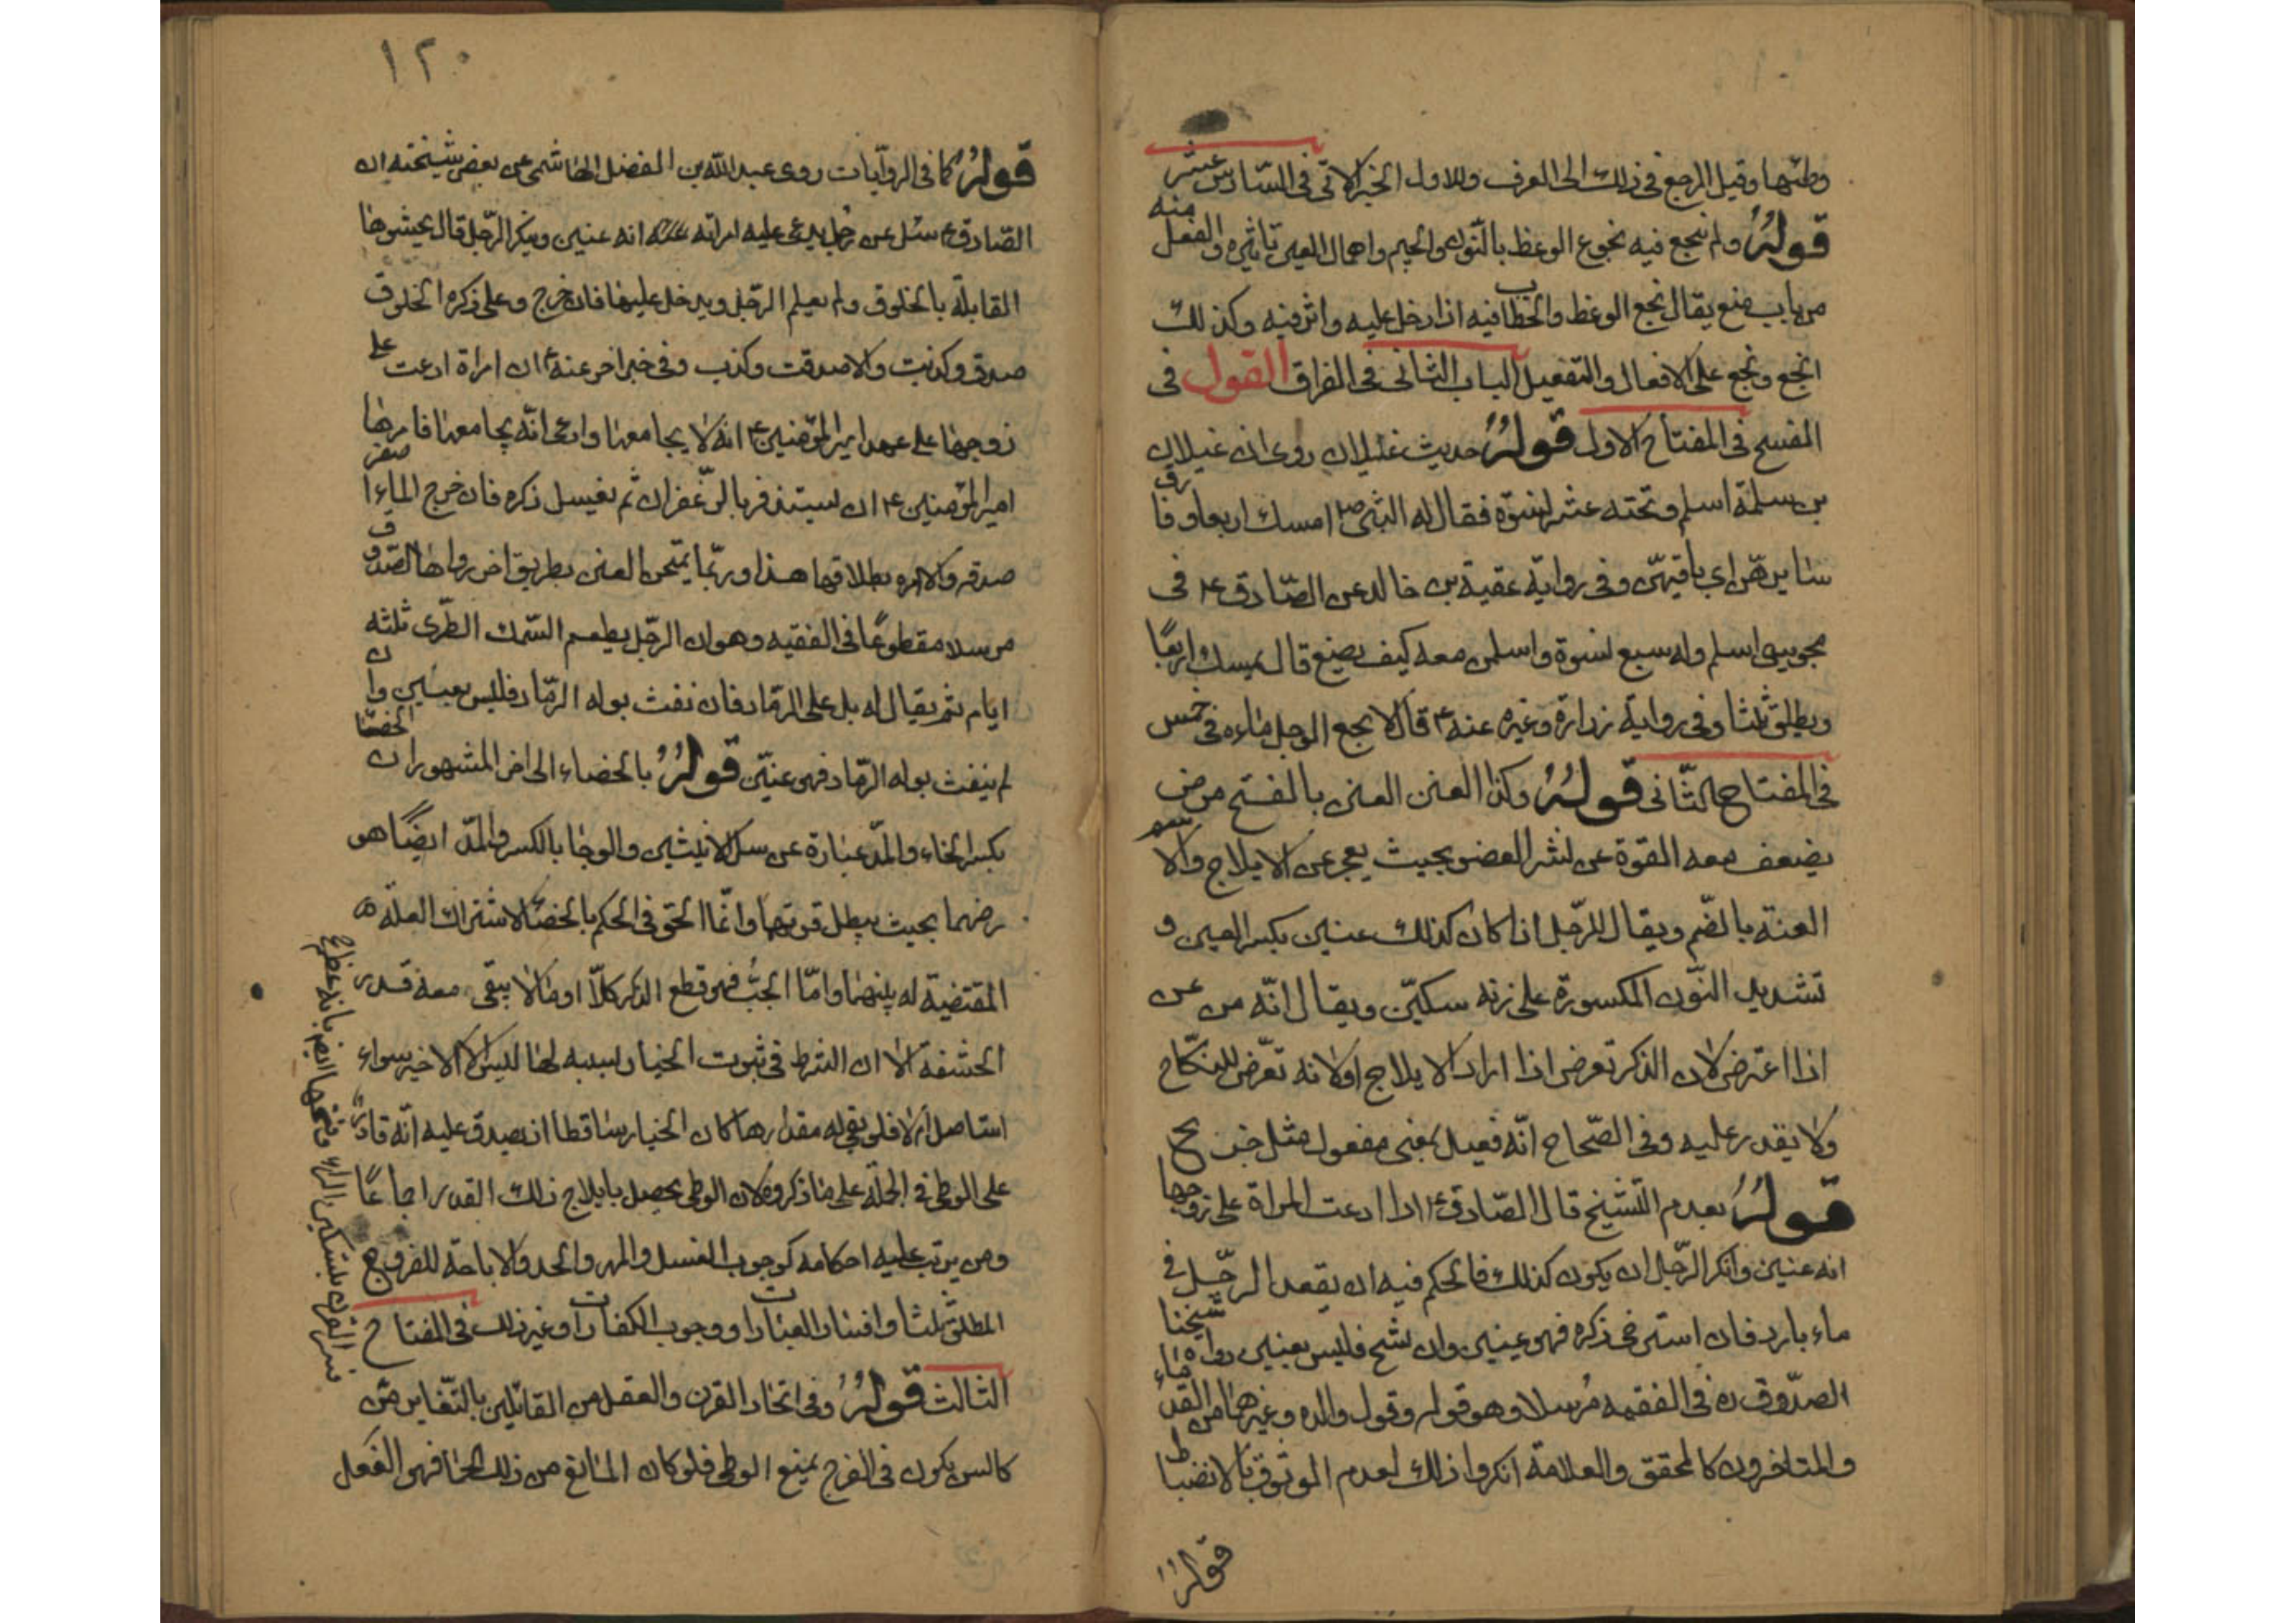 وطئها وقيل المرجع في ذلك الى العرف وللاول الخبر الاتى فى السّادس عشر
قولهُ ولم ينجع فيه نجوع الوعظ بالنّون والجيم واهمال العين تاثيره والفعل منه
من باب منع يقال نجع الوعظ والخطاب فيه اذا دخل عليه واثر فيه وكذلك
انجع ونجع على الافعال والتفعيل الباب الثانى فى الفراق القول فى
الفسخ فى المفتاح الاول قولهُ حديث غيلان روى ان غيلان
بن سلمة اسلم وتحته عشر نسوة فقال له النبى ص امسك اربعا وفارق
سايرهنّ اى باقيهنّ وفى رواية عقبة بن خالد عن الصّادق ع فى
مجوسى اسلم وله سبع نسوة واسلمن معه كيف يصنع قال يمسك اربعًا
ويطلق ثلثا وفى رواية زرارة وغيره عنه ع قال لا يجمع الرجل ماءه فى خمس
فى المفتاح الثّانى قولهُ وكذا العنن العنن بالفتح مرض
يضعف معه القوة عن نشر العضو بحيث يعجز عن الايلاج والاسم
العنة بالضّم ويقال للرّجل اذا كان كذلك عنين بكسر العين و
تشديد النّون المكسورة على زنه سكيّن ويقال انّه من عن
اذا اعترض لان الذكر تعرض اذا اراد الايلاج او لانه تعرّض للنكاح
ولا يقدر عليه وفى الصّحاح انّه فعيل بمعنى مفعول مثل جريح
قولهُ بعدم التشنيخ قال الصّادق ع اذا ادعت المراة على زوجها
انه عنين وانكر الرّجل ان يكون كذلك فالحكم فيه ان يقعد الرجّل فى
ماء بارد فان استرخى ذكره فهو عينين وان تشنج فليس بعنين رواه شيخنا
الصدّوق ره فى الفقيه مُرسلا وهو قوله وقول والده وغيرهما من القدماء
والمتاخرون كالمحقق والعلامة انكروا ذلك لعدم الوثوق بالانضباط
قولهُ
١٢٠
قولهُ كما فى الروايات روى عبد اللّه بن الفضل الهاشمى عن بعض مشيخته ان
الصّادق ع سئل عن رجل يدعى عليه امراته انه عنين وينكر الرّجل قال يحشوها
القابلة بالخلوق ولم يعلم الرّجل ويدخل عليها فان خرج وعلى ذكره الخلوق
صدق وكذبت والا صدقت وكذب وفى خبر اخر عنه ع ان امراة ادعت على
زوجها على عهد امير المؤمنين ع انه لا يجامعها وادعى انّه يجامعها فامرها
امير المؤمنين ع ان تستذفر بالزّعفران ثم يغسل ذكره فان خرج الماء اصفر
صدقه والا امره بطلاقها هذا وربّما يمتحن العنن بطريق اخر رواها الصّدوق
مرسلا مقطوعًا فى الفقيه وهو ان الرّجل يطعم السّمك الطّرى ثلثه
ايام ثم يقال له بل على الرّماد فان نفث بوله الرّماد فليس بعنين وان
لم ينفث بوله الرّماد فهو عنيّن قولهُ بالخصاء الى اخر المشهور ان الخصاء
بكسر الخاء والمدّ عبارة عن سل الانثيين والوجا بالكسر والمدّ ايضًا هو
رضهما بحيث يبطل قوتهما وانمّا الحق فى الحكم بالخصاء لاشتراك العلّة
المقتضية له بينهما وامّا الجبُّ فهو قطع الذكر كلاّ او ما لا يبقى معه قدر
الحشفة الا ان الشرط فى ثبوت الخيار بسببه لها ليس الا الاخير سواء
استاصل ام لا فلو بقى له مقدارها كان الخيار ساقطا اذ يصدق عليه انّه قادر
على الوطى فى الجملة على ما ذكروه لان الوطى يحصل بايلاج ذلك القدر اجماعًا
ومن يترتب عليه احكامه كوجوب الغسل والمهر والحد والاباحة للفروج
المطلق ثلثا وافساد العبادات ووجوب الكفارات وغير ذلك فى المفتاح
الثالث قولهُ وفى اتحاد القرن والعفل من القائلين بالتّغاير من
كالسن يكون فى الفرج يمنع الوطى فلو كان المانع من ذلك لحما فهو العَفَل